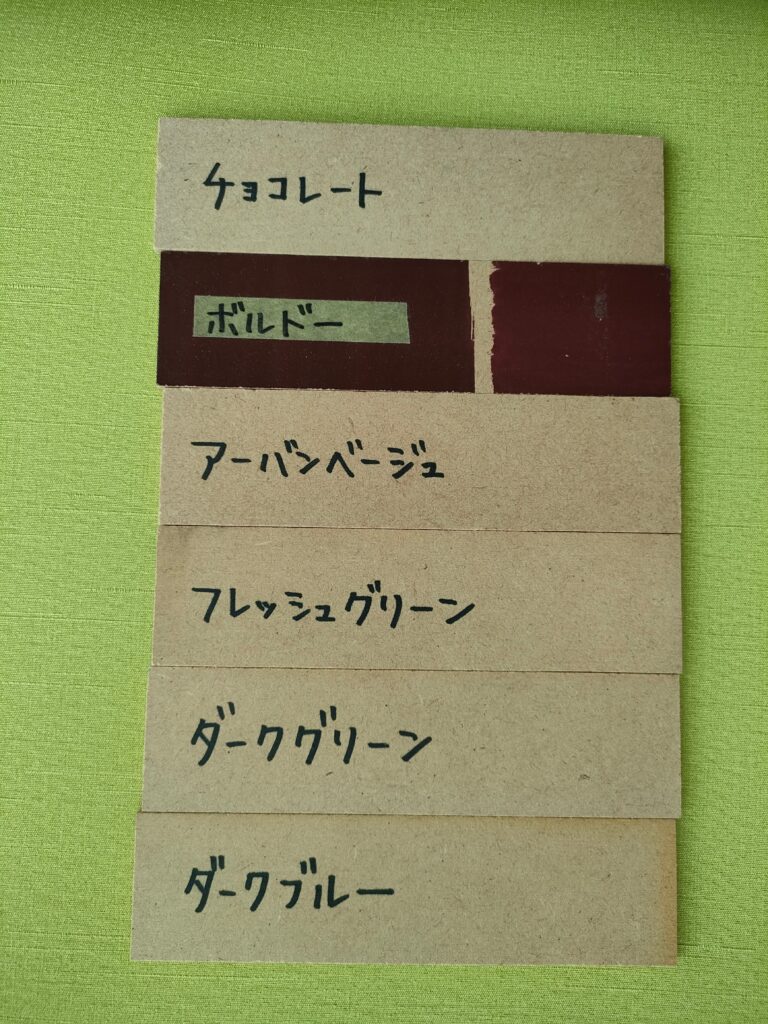 チョコレート
ボルドー
アーバンベージュ
フレッシュグリーン
ダークグリーン
ダークブルー